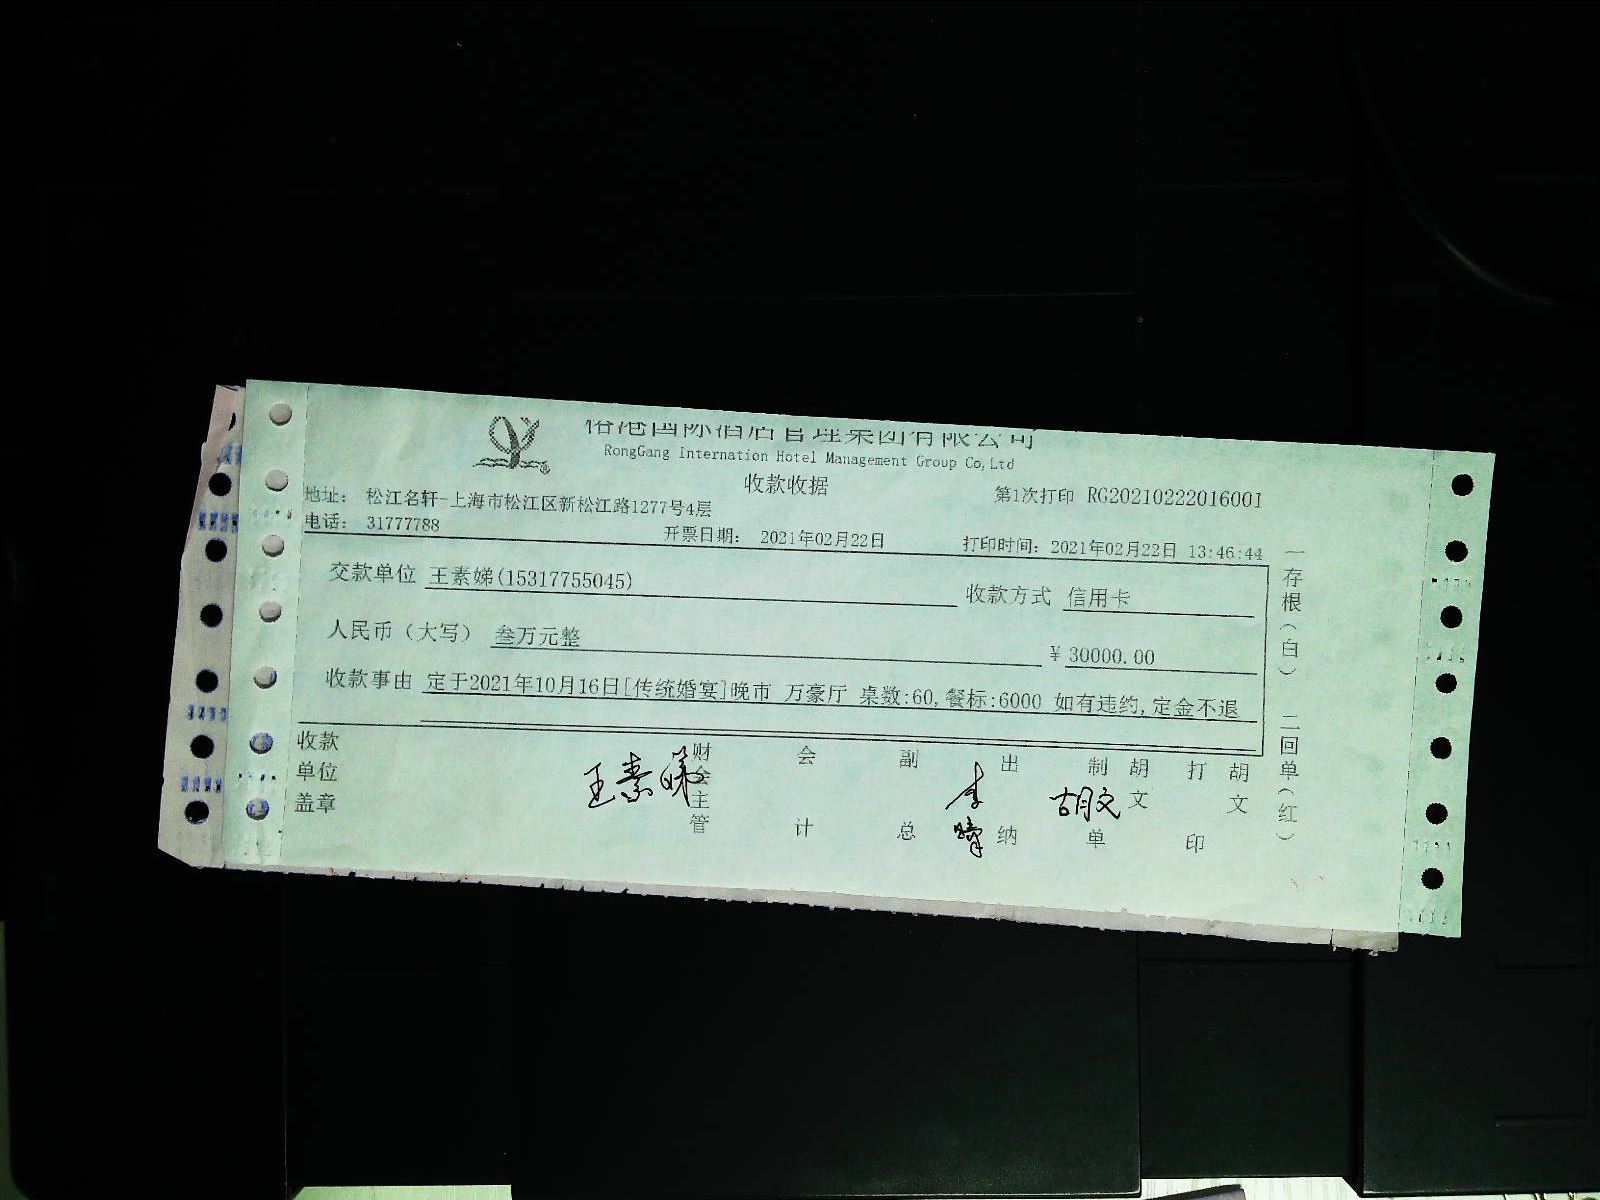 国际酒店管理集团有限公司
RongGang Internation Hotel Management Group Co,Ltd
收款收据
第1次打印 RG20210222016001
地址： 松江名轩-上海市松江区新松江路1277号4层
电话： 31777788
开票日期： 2021年02月22日
打印时间：2021年02月22日 13:46:44
交款单位 王素娣(15317755045)
收款方式 信用卡
人民币（大写） 叁万元整
￥30000.00
收款事由 定于2021年10月16日[传统婚宴]晚市 万豪厅 桌数:60,餐标:6000 如有违约,定金不退
收款单位盖章
王素娣
财会主管
会计
副总
李
出纳
胡文
制单
胡文
打印
胡文
一存根（白）
二回单（红）